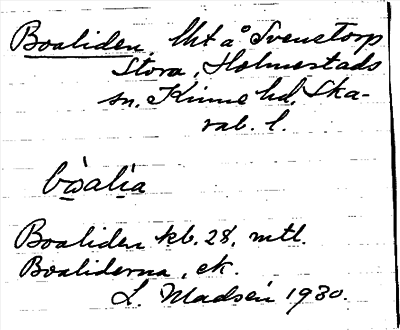 Boaliden, Lht å Svenstorp
Stora, Holmestads
sn. Kinne hd, Ska-
rab. l.
bòalia
Boaliden kb. 28, mtl.
Boaliderna, ek.
L. Madsén 1930.